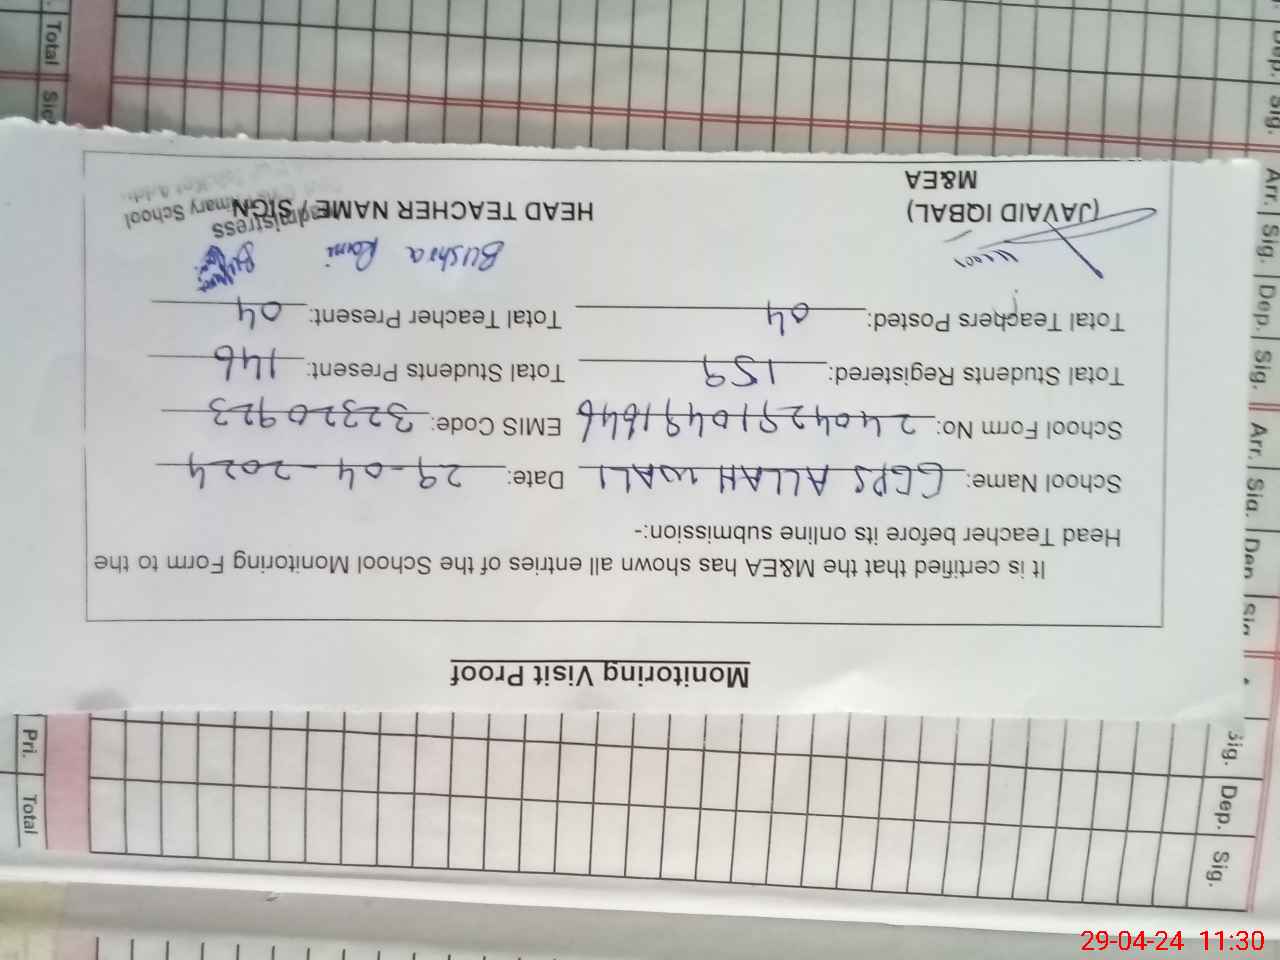 Monitoring Visit Proof
It is certified that the M&EA has shown all entries of the School Monitoring Form to the
Head Teacher before its online submission:-
School Name: GGPS ALLAH WALI Date: 29-04-2024
School Form No: 24042910491646 EMIS Code: 32320923
Total Students Registered: 159 Total Students Present: 146
Total Teachers Posted: 04 Total Teacher Present: 04
Bushra Rani
(JAVAID IQBAL) HEAD TEACHER NAME / SIGN
M&EA
Primary School
Total
Sig.
Dep.
Sig.
Arr.
Sig.
Dep.
Sig.
Arr.
Sig.
Dep.
Sig.
Sig.
Dep.
Sig.
Pri.
Total
29-04-24 11:30